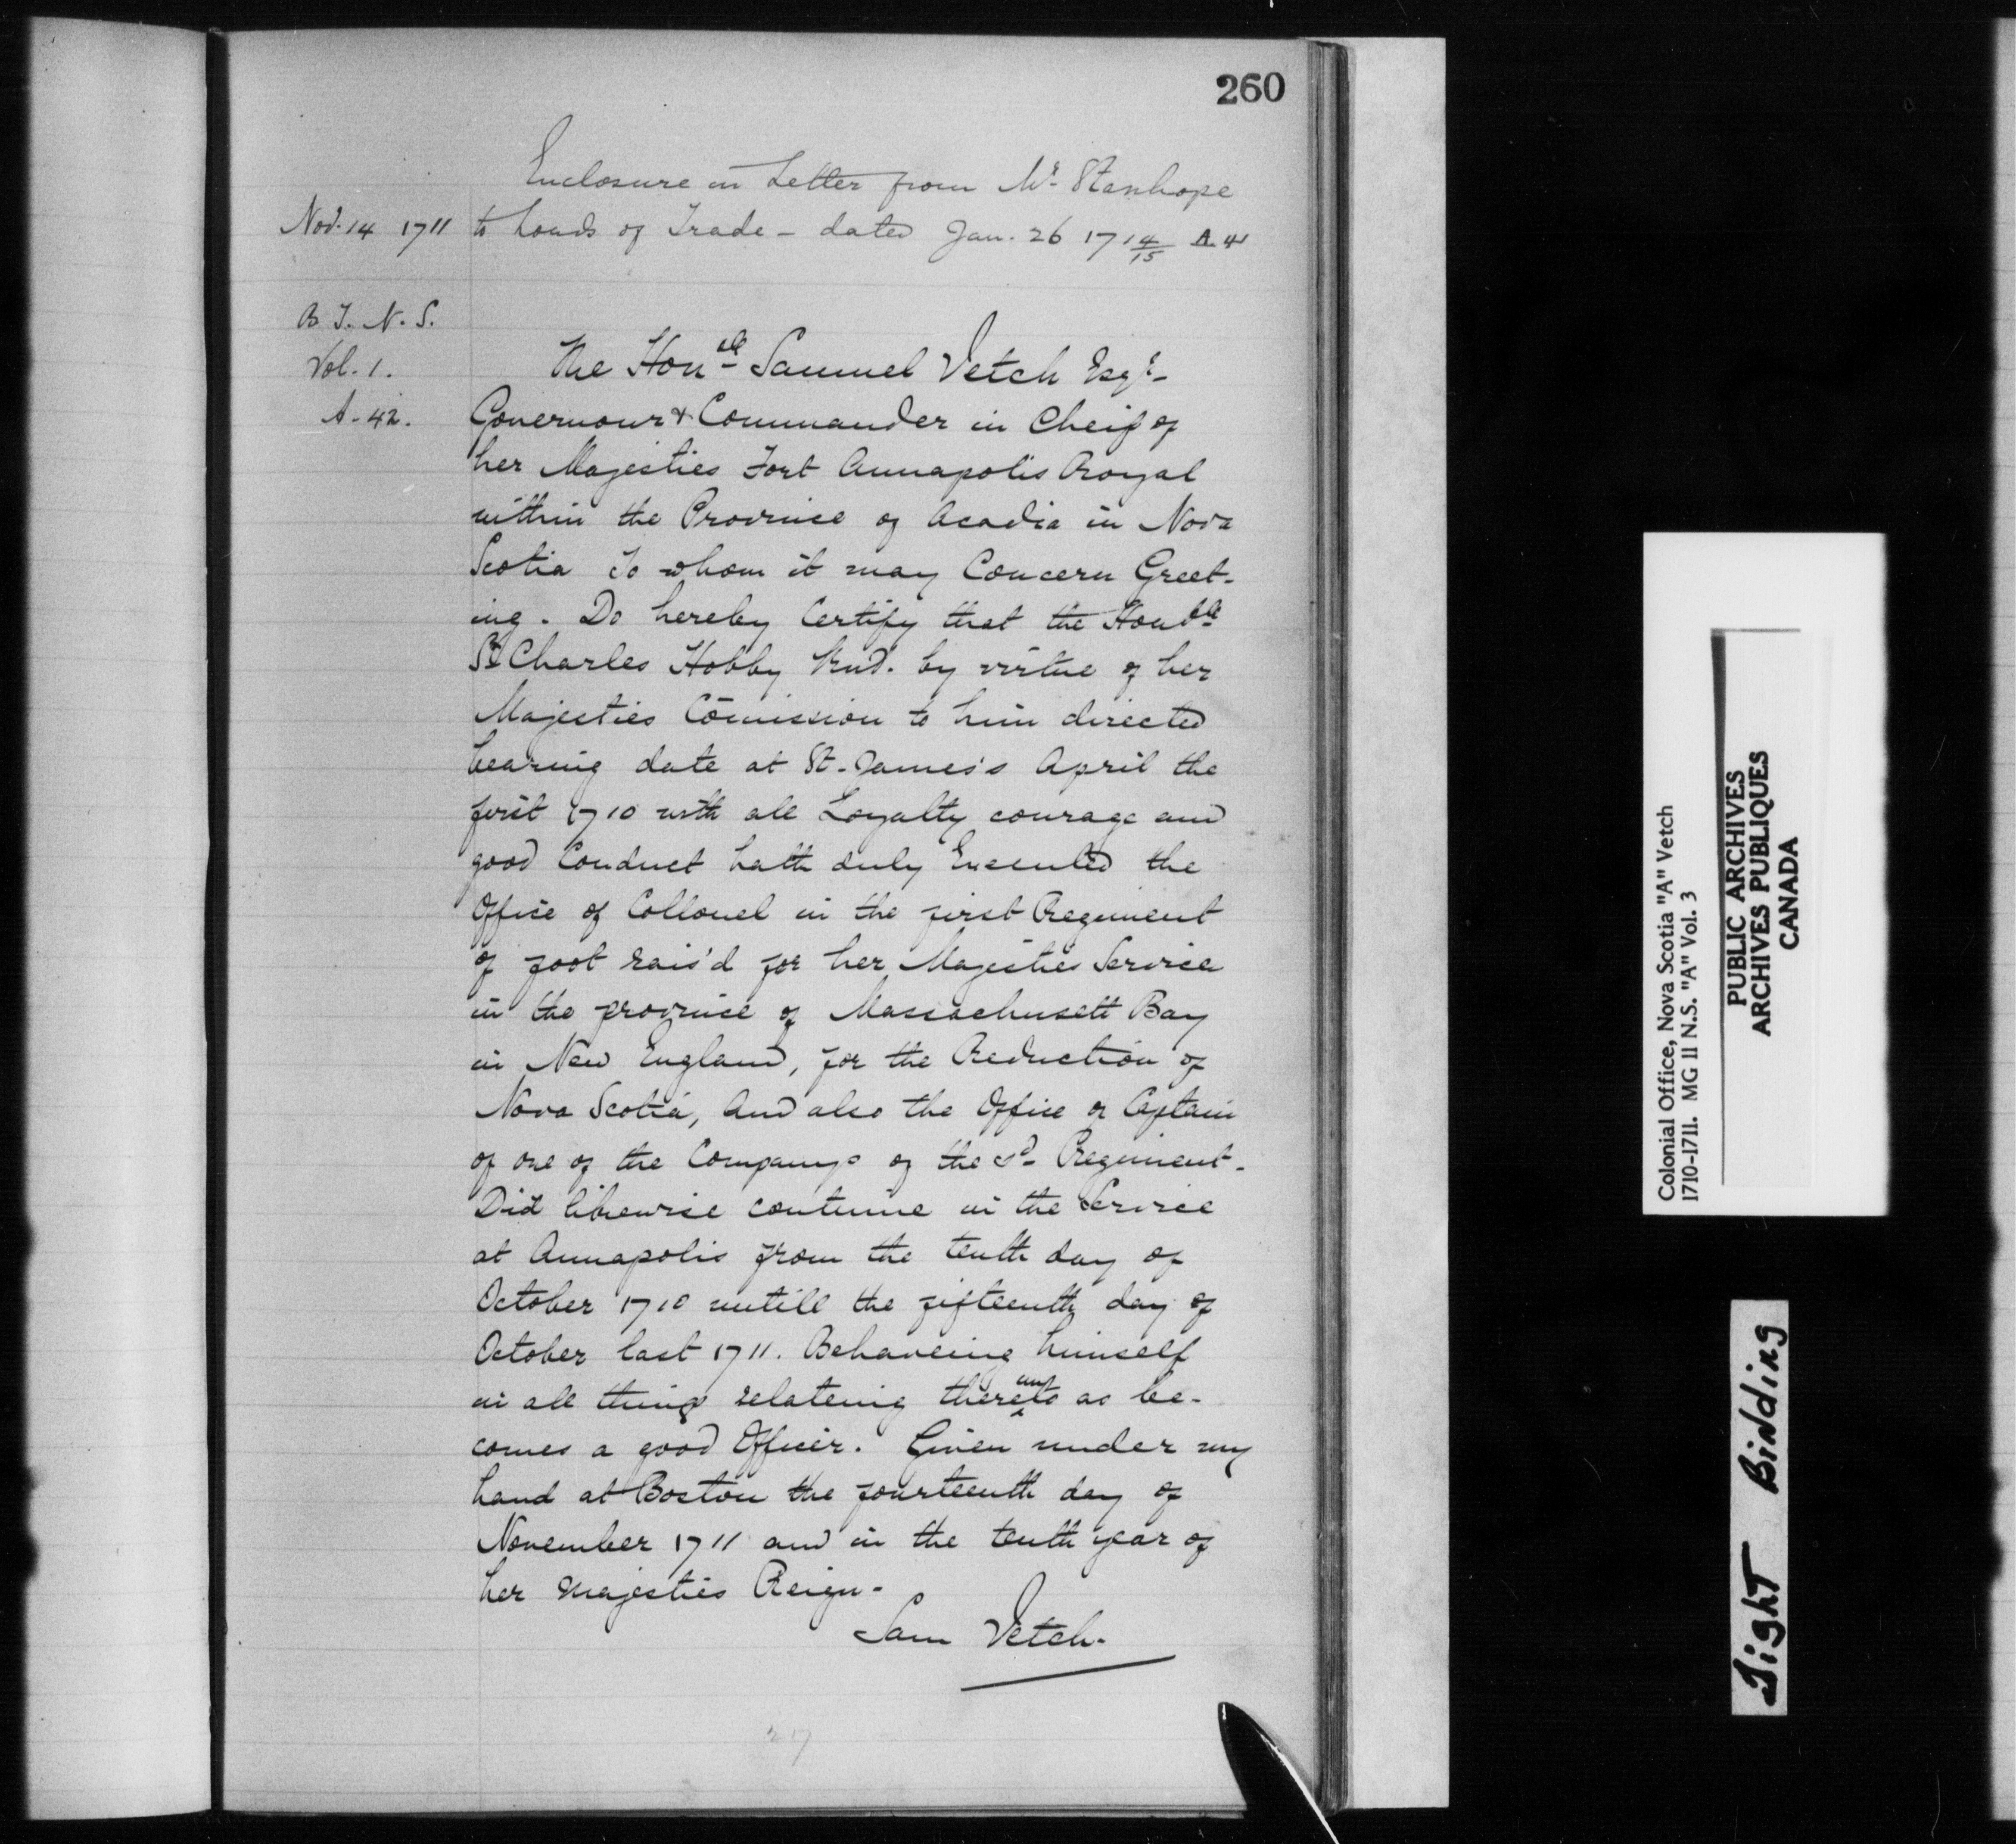 260
Enclosure in Letter from Mr. Stanhope
Nov. 14 1711 to Lords of Trade - dated Jan. 26 1714/15 A. 41
B. T. N. S.
Vol. 1.
A - 42.
The Honble Samuel Vetch Esqr-
Governour & Commander in Cheif of
her Majesties Fort Annapolis Royal
within the Province of Acadia in Nova
Scotia To whom it may Concern Greet-
ing. Do hereby Certify that the Honble
Sr Charles Hobby Knt. by virtue of her
Majesties Com̄ission to him directed
bearing date at St. James's April the
first 1710 with all Loyalty courage and
good Conduct hath duly Executed the
Office of Collonel in the first Regiment
of foot rais'd for her Majesties Service
in the province of Massachusett Bay
in New England, for the Reduction of
Nova Scotia, And also the Office or Captain
of one of the Companys of the sd- Regiment-
Did likewise continue in the Service
at Annapolis from the tenth day of
October 1710 untill the fifteenth day of
October last 1711. Behaveing himself
in all things relateing thereunto as be-
comes a good Officer. Given under my
hand at Boston the fourteenth day of
November 1711 and in the tenth year of
her Majesties Reign-
Sam Vetch.
27
Colonial Office, Nova Scotia "A" Vetch
1710-1711. MG 11 N.S. "A" Vol. 3
PUBLIC ARCHIVES
ARCHIVES PUBLIQUES
CANADA
Tight Binding